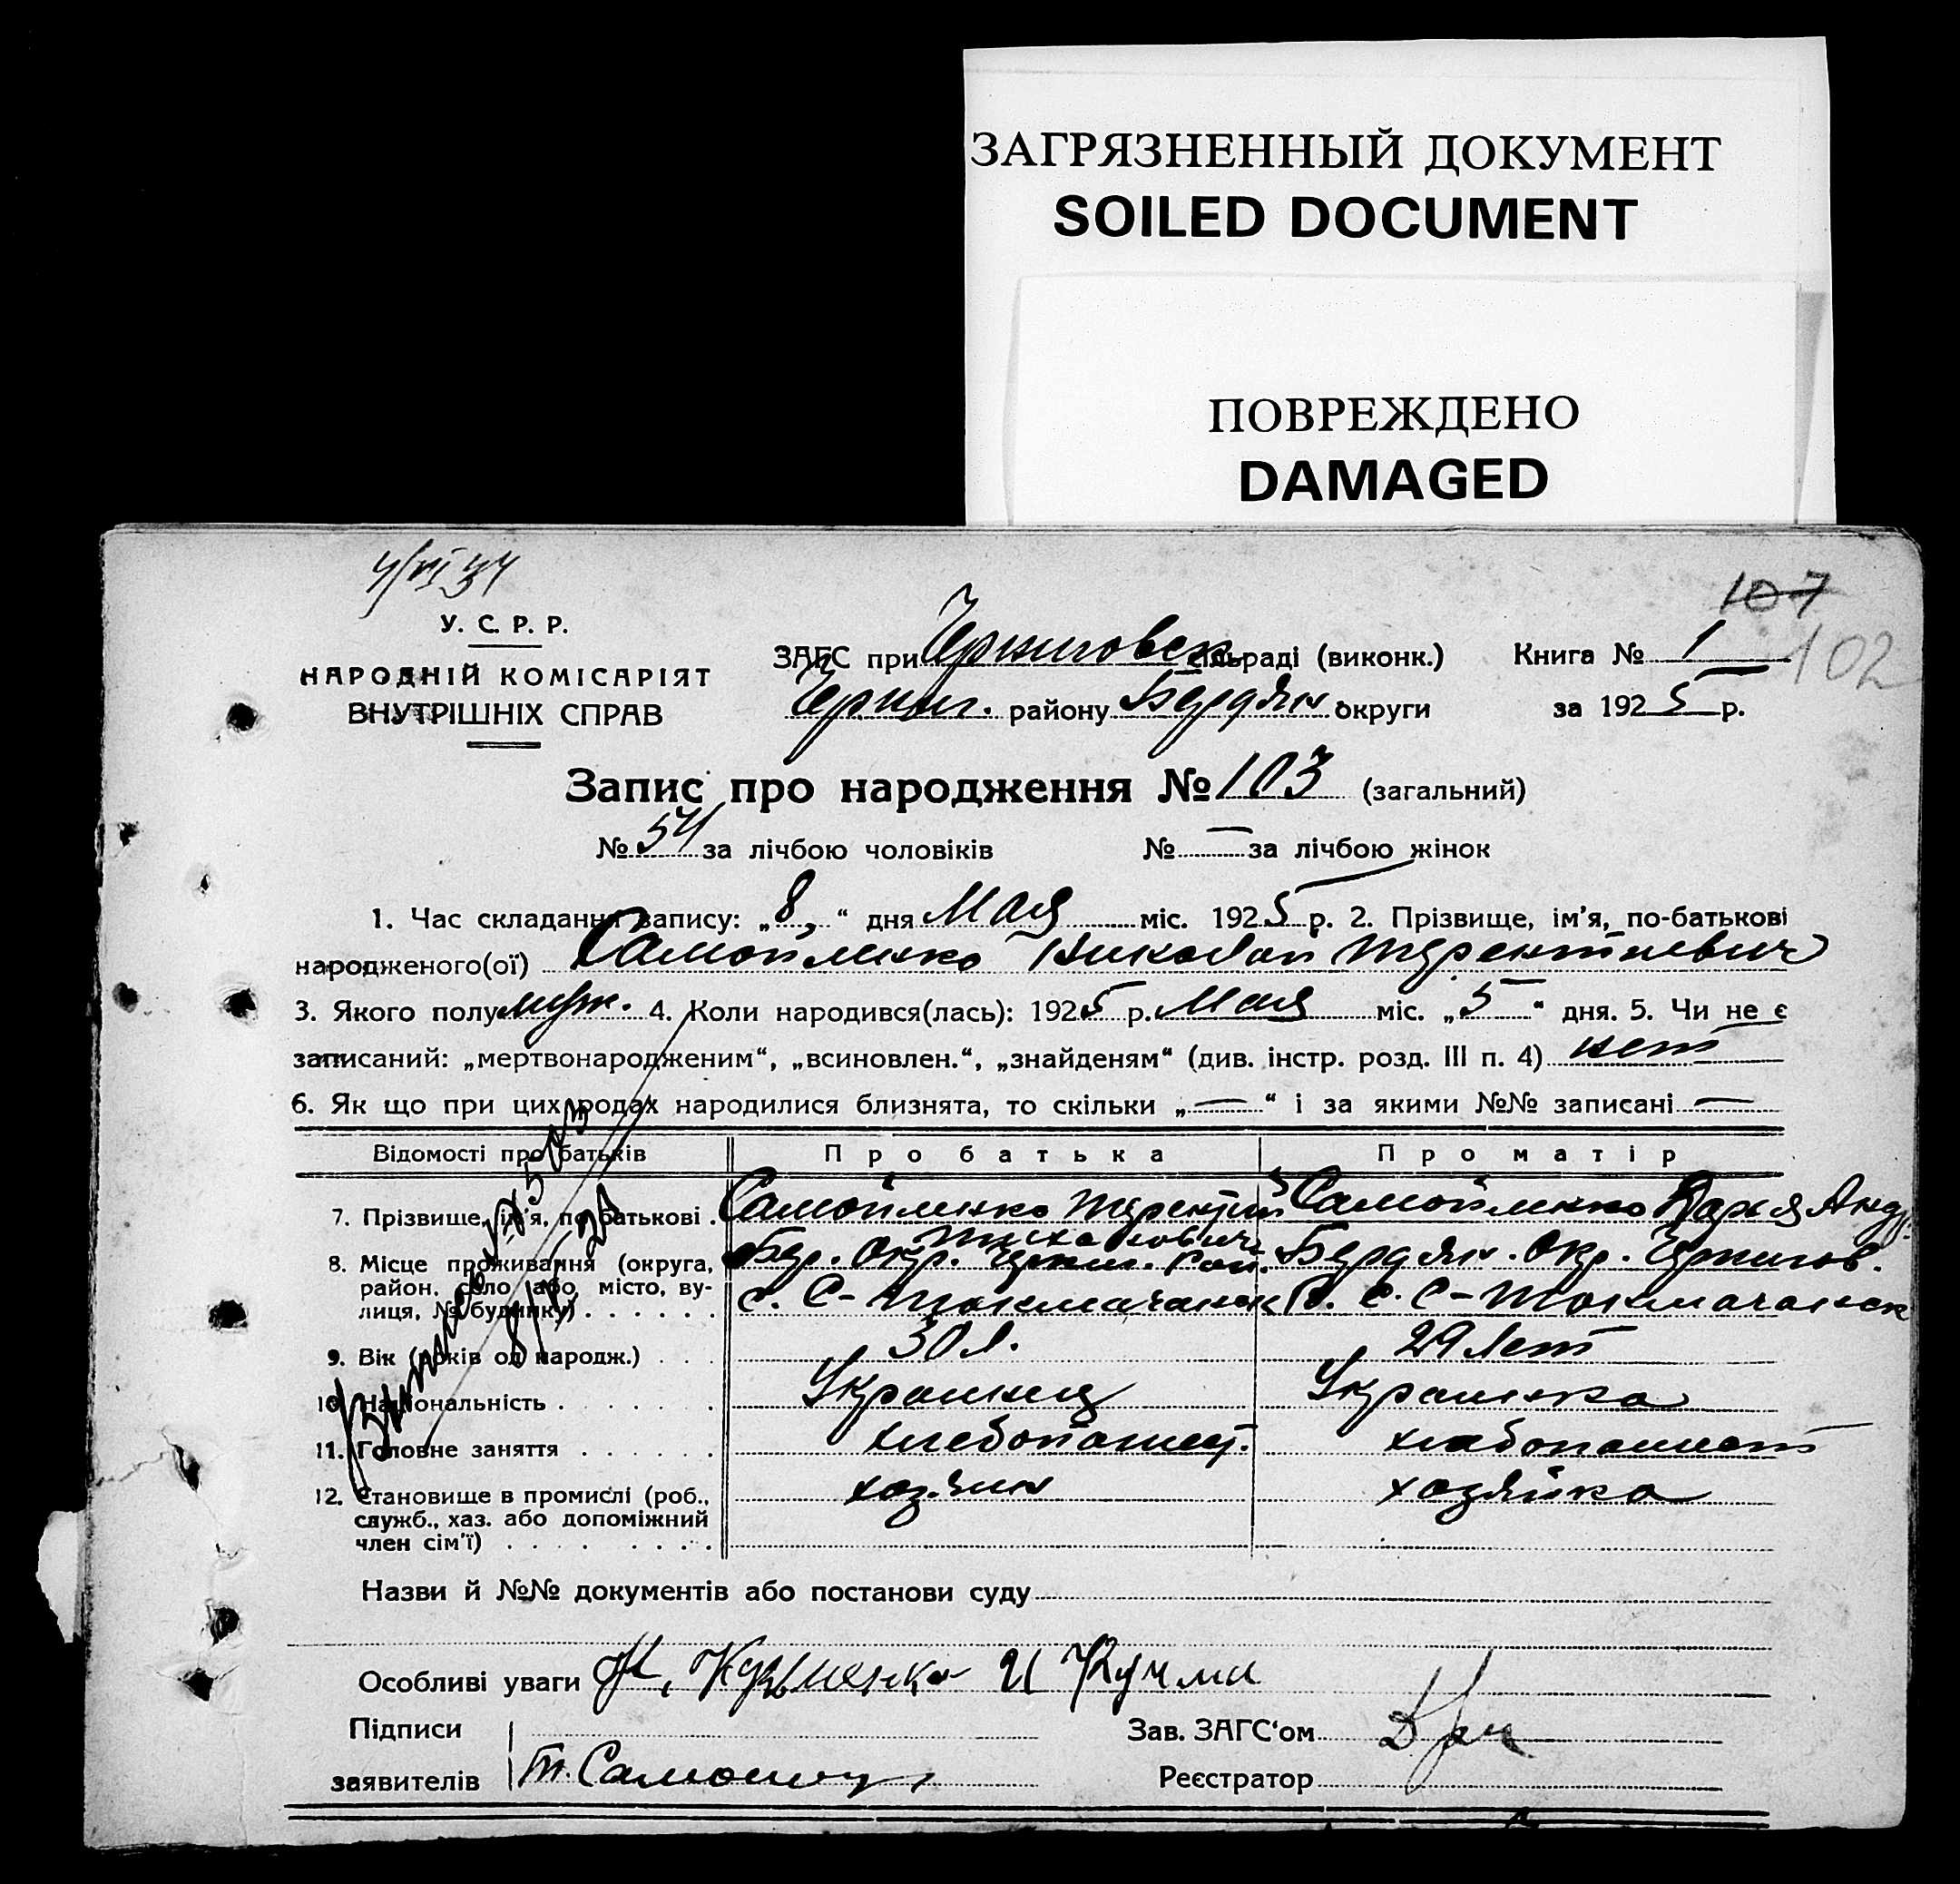 ЗАГРЯЗНЕННЫЙ ДОКУМЕНТ
SOILED DOCUMENT
ПОВРЕЖДЕНО
DAMAGED
107
102
У. С. Р. Р.
НАРОДНІЙ КОМІСАРІЯТ
ВНУТРІШНІХ СПРАВ
ЗАГС при Черниговск. сільраді (виконк.) Книга № 1
Черниг. району Бердян округи за 1925 р.
Запис про народження № 103 (загальний)
№ 54 за лічбою чоловіків № — за лічбою жінок
1. Час складання запису: „8„ “ дня Мая міс. 1925 р. 2. Прізвище, ім’я, по-батькові
народженого(ої) Самойленко Николай Терентиевич
3. Якого полу муж. 4. Коли народився(лась): 1925 р. Мая міс. „5“ дня. 5. Чи не є
записаний: „мертвонародженим“, „всиновлен.“, „знайденям“ (див. інстр. розд. III п. 4) нет
6. Як що при цих родах народилися близнята, то скільки „—“ і за якими №№ записані —
Відомості про батьків Про батька Про матір
7. Прізвище, ім’я, по батькові . Самойленко Терентий Тихонович Самойленко Дарья Андр.
8. Місце проживання (округа, Бер. Окр. Черниг. Рай. Бердян. Окр. Чернигов.
район, село або місто, ву- с. С-Токмачанск Р. с. С-Токмачанск
лиця, № будинку) . . . . . .
9. Вік (років од народж.) . . . 30 л. 29 лет
10. Національність . . . . . . Украинец Украинка
11. Головне заняття . . . . . хлебопашец. хлебопашест
12. Становище в промислі (роб., хозяин хозяйка
служб., хаз. або допоміжний
член сім’ї) . . . . . . . .
Назви й №№ документів або постанови суду
Особливі уваги Кузьменко и Кучма
Підписи Зав. ЗАГС‘ом
заявителів Т. Самойл Реєстратор